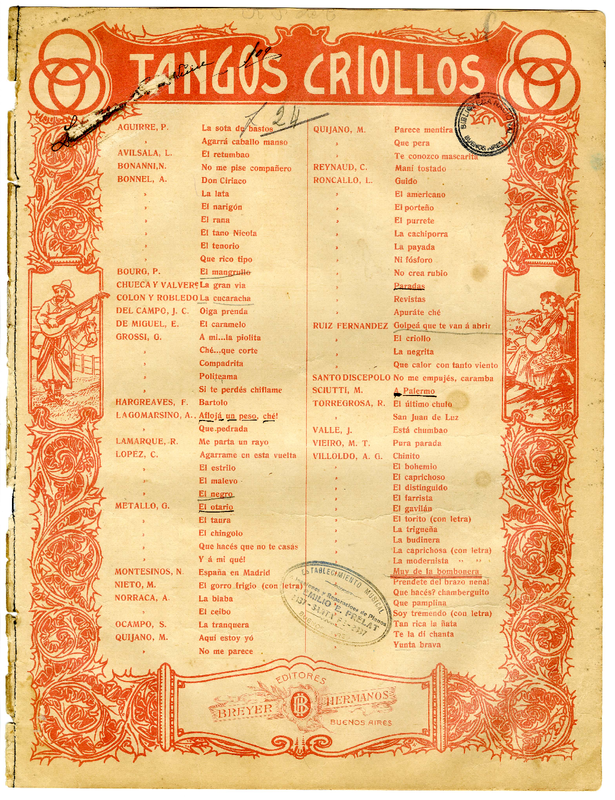 TANGOS CRIOLLOS
24
AGUIRRE, P. La sota de bastos
Agarrá caballo manso
AVILSALA, L. El retumbao
BONANNI, N. No me pise compañero
BONNEL, A. Don Ciriaco
" La lata
" El narigón
" El rana
" El tano Nicola
" El tenorio
" Que rico tipo
BOURG, P. El mangrullo
CHUECA Y VALVERD La gran via
COLON Y ROBLEDO La cucaracha
DEL CAMPO, J. C. Oiga prenda
DE MIGUEL, E. El caramelo
GROSSI, G. A mi...la piolita
" Ché...que corte
" Compadrita
" Politeama
" Si te perdés chiflame
HARGREAVES, F. Bartolo
LAGOMARSINO, A. Aflojá un peso, ché!
" Que pedrada
LAMARQUE, R. Me parta un rayo
LOPEZ, C. Agarrame en esta vuelta
" El estrilo
" El malevo
" El negro
METALLO, G. El otario
" El taura
" El chingolo
" Que hacés que no te casás
" Y á mi qué!
MONTESINOS, N. España en Madrid
NIETO, M. El gorro frigio (con letra)
NORRACA, A. La biaba
" El ceibo
OCAMPO, S. La tranquera
QUIJANO, M. Aquí estoy yó
" No me parece
QUIJANO, M. Parece mentira
" Que pera
" Te conozco mascarita
REYNAUD, C. Maní tostado
RONCALLO, L. Guido
" El americano
" El porteño
" El purrete
" La cachiporra
" La payada
" Ni fósforo
" No crea rubio
" Paradas
" Revistas
" Apuráte ché
RUIZ FERNANDEZ Golpeá que te van á abrir
" El criollo
" La negrita
" Que calor con tanto viento
SANTO DISCEPOLO No me empujés, caramba
SCIUTTI, M. A Palermo
TORREGROSA, R. El último chulo
" San Juan de Luz
VALLE, J. Está chumbao
VIEIRO, M. T. Pura parada
VILLOLDO, A. G. Chinito
" El bohemio
" El caprichoso
" El distinguido
" El farrista
" El gavilán
" El torito (con letra)
" La trigueña
" La budinera
" La caprichosa (con letra)
" La modernista " "
" Muy de la bombonera
" Prendete del brazo nena!
" Que hacés? chamberguito
" Que pamplina
" Soy tremendo (con letra)
" Tan rica la ñata
" Te la di chanta
" Yunta brava
ESTABLECIMIENTO MUSICAL
EMILIO E. PRELAT
EDITORES
BREYER HERMANOS
BUENOS AIRES